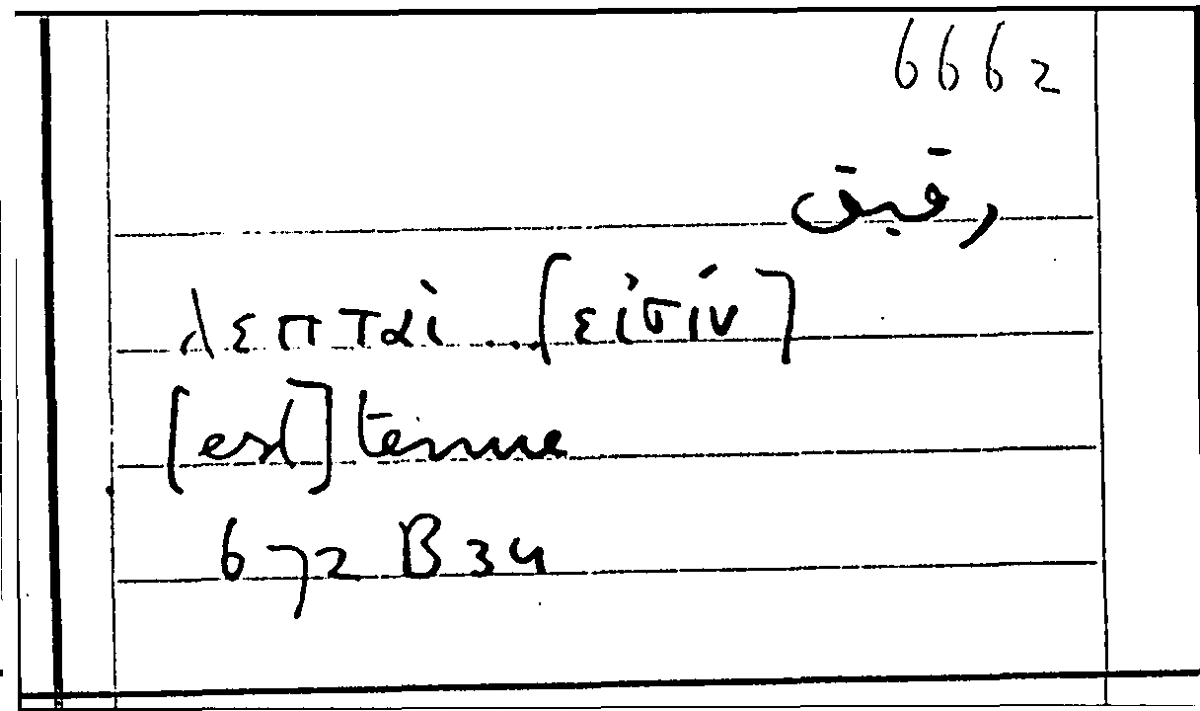 6662
رقيق
λεπταὶ ... [εἰσίν]
[est] tenue
672 B 34